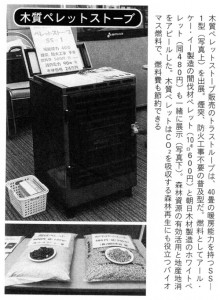 木質ペレットストーブ
木質ペレットストーブ販売のトムストループは、40畳の暖房能力を持つSS-
1型（写真上）を出展。煙突、防火工事不要の普及型だ。燃料としてアール・
ケー・イー製造の間伐材ペレット（10㎏600円）と朝日木材製造のホワイトペ
レット（同480円）も一緒に展示（写真下）。森林資源の有効活用と地産地消
をアピールした。木質ペレットはCO₂を吸収する森林再生にも役立つバイオ
マス燃料で、燃料費も節約できる